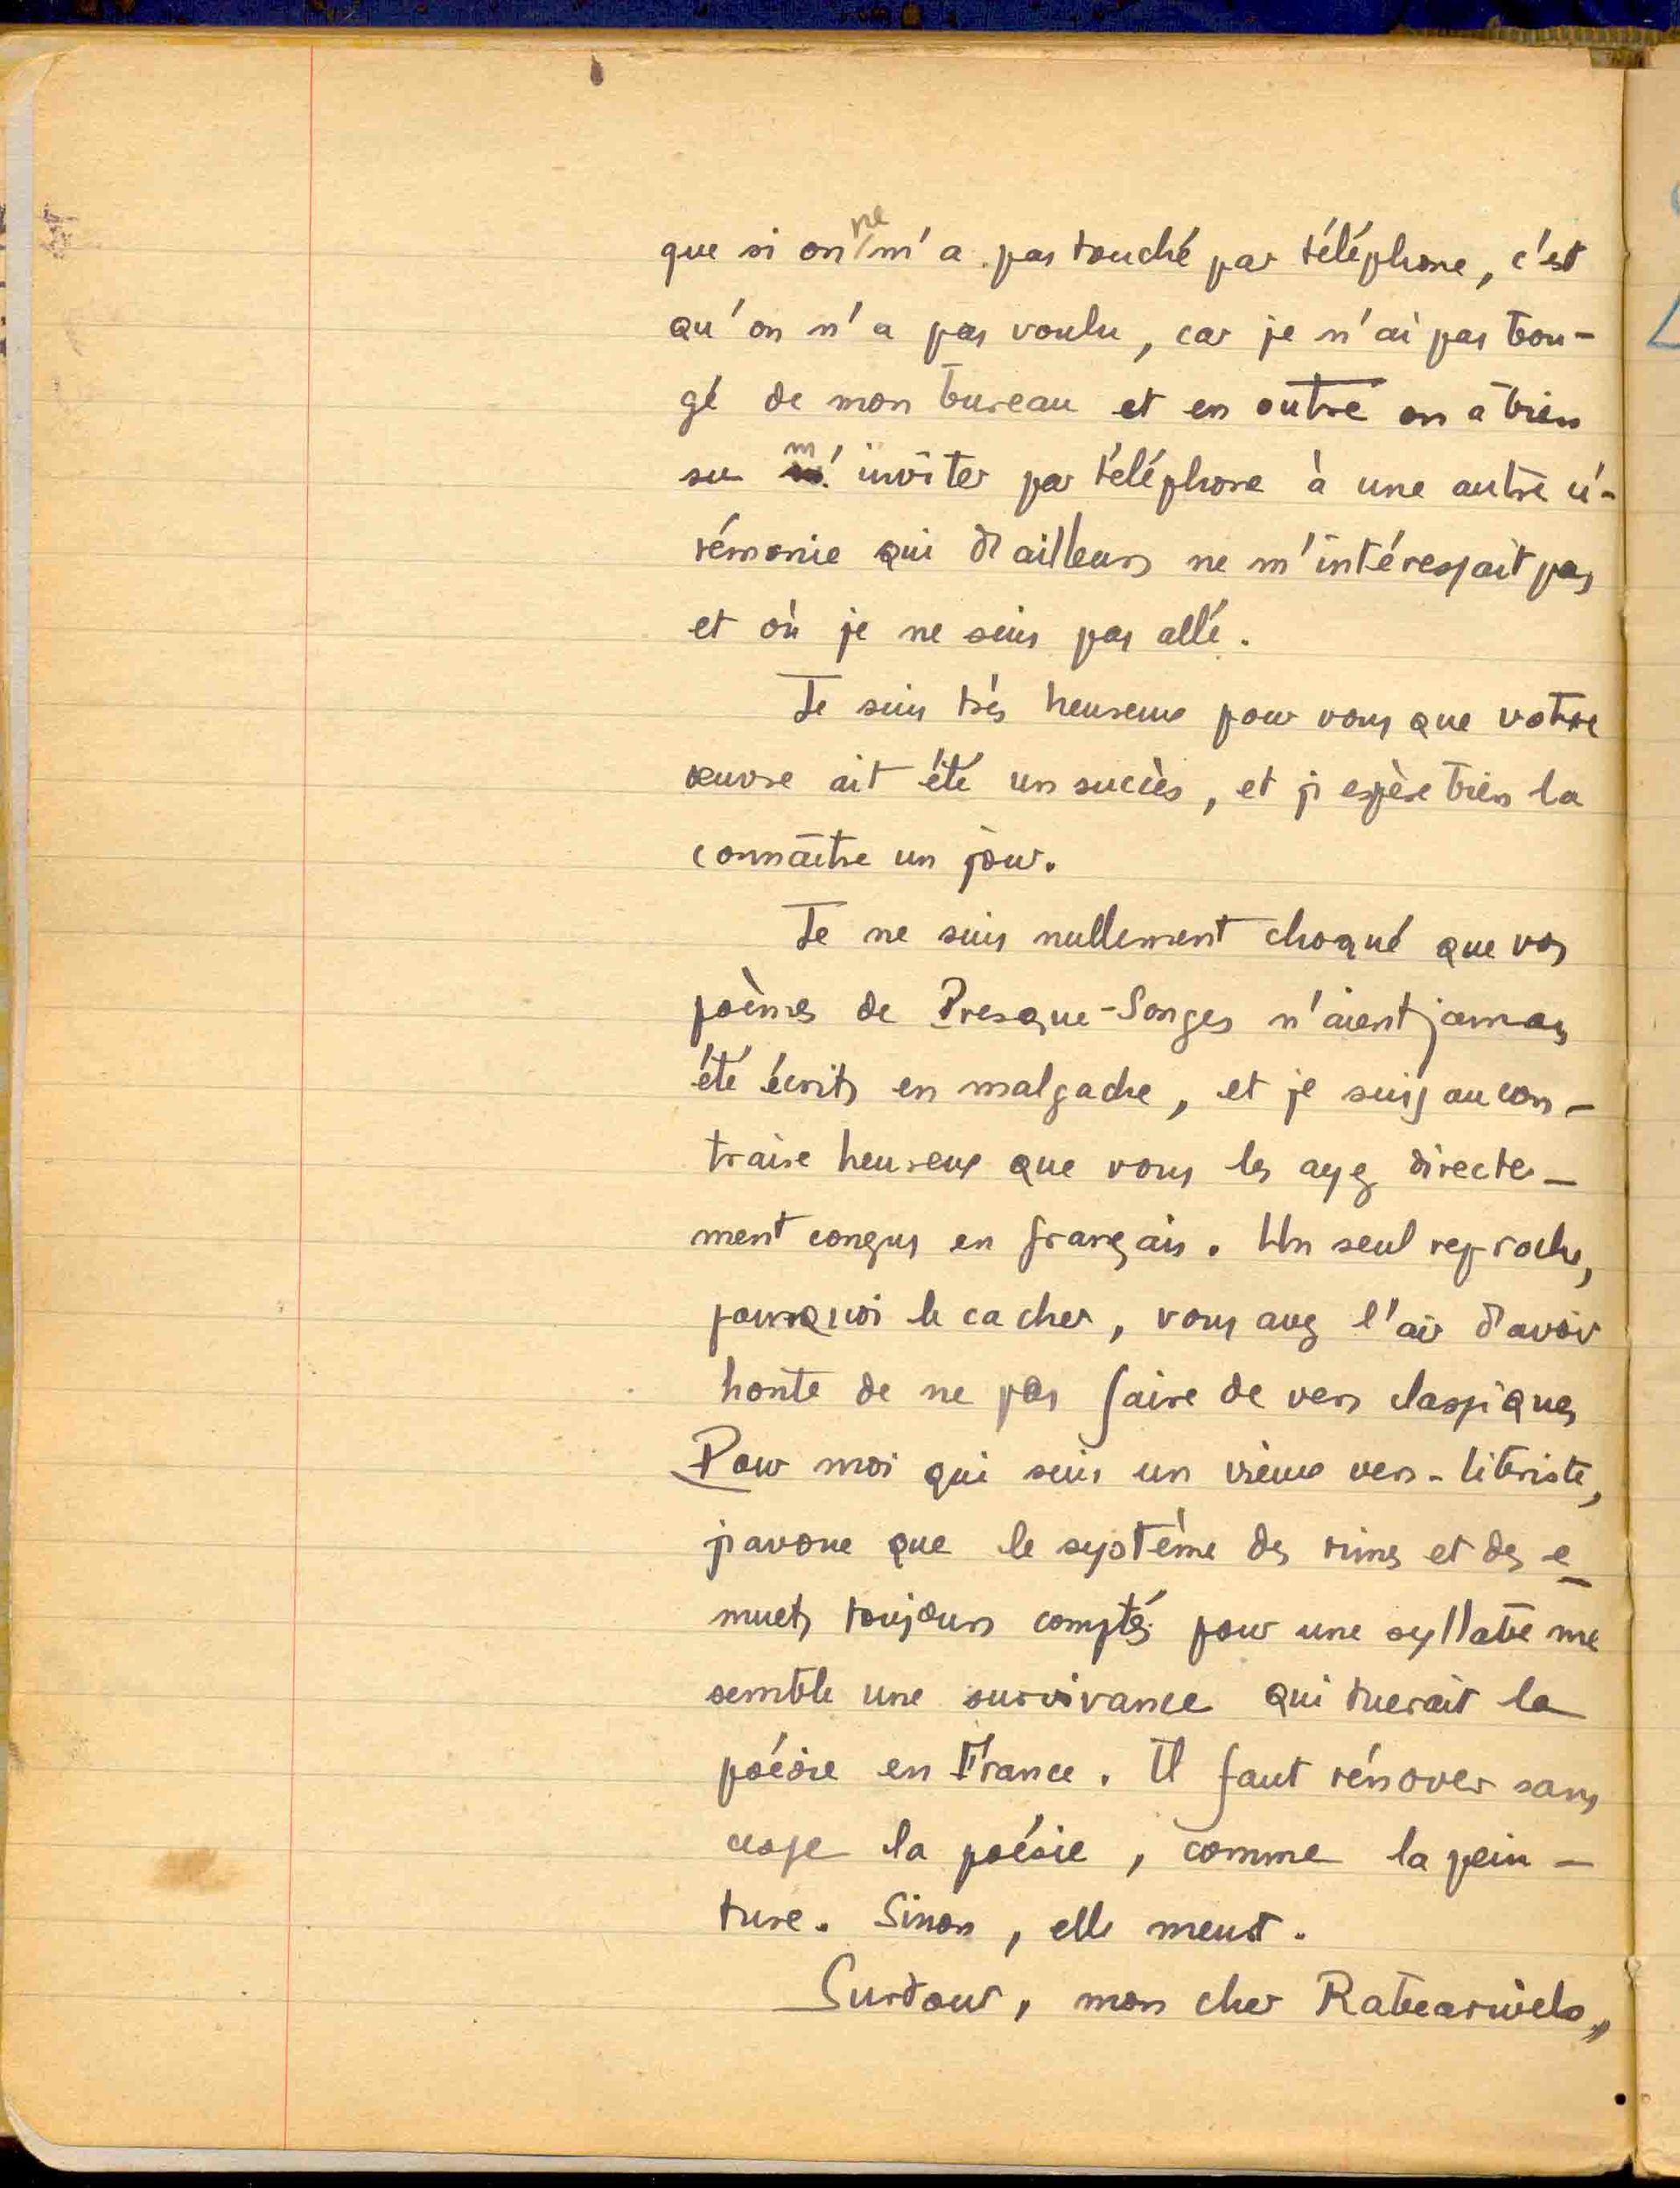 que si on ne m'a pas touché par téléphone, c'est
qu'on n'a pas voulu, car je n'ai pas bou-
gé de mon bureau et en outre on a bien
su m'inviter par téléphone à une autre cé-
rémonie qui d'ailleurs ne m'intéressait pas
et où je ne suis pas allé.
Je suis très heureux pour vous que votre
œuvre ait été un succès, et j'espère bien la
connaître un jour.
Je ne suis nullement choqué que vos
poèmes de Presque-Songes n'aient jamais
été écrits en malgache, et je suis au con-
traire heureux que vous les ayez directe-
ment conçus en français. Un seul reproche,
pourquoi le cacher, vous avez l'air d'avoir
honte de ne pas faire de vers classiques
Pour moi qui suis un vieux vers-libriste,
j'avoue que le système des rimes et des e
muets toujours comptés pour une syllabe me
semble une survivance qui tuerait la
poésie en France. Il faut rénover sans
cesse la poésie, comme la pein-
ture. Sinon, elle meurt.
Surtout, mon cher Rabearivelo,